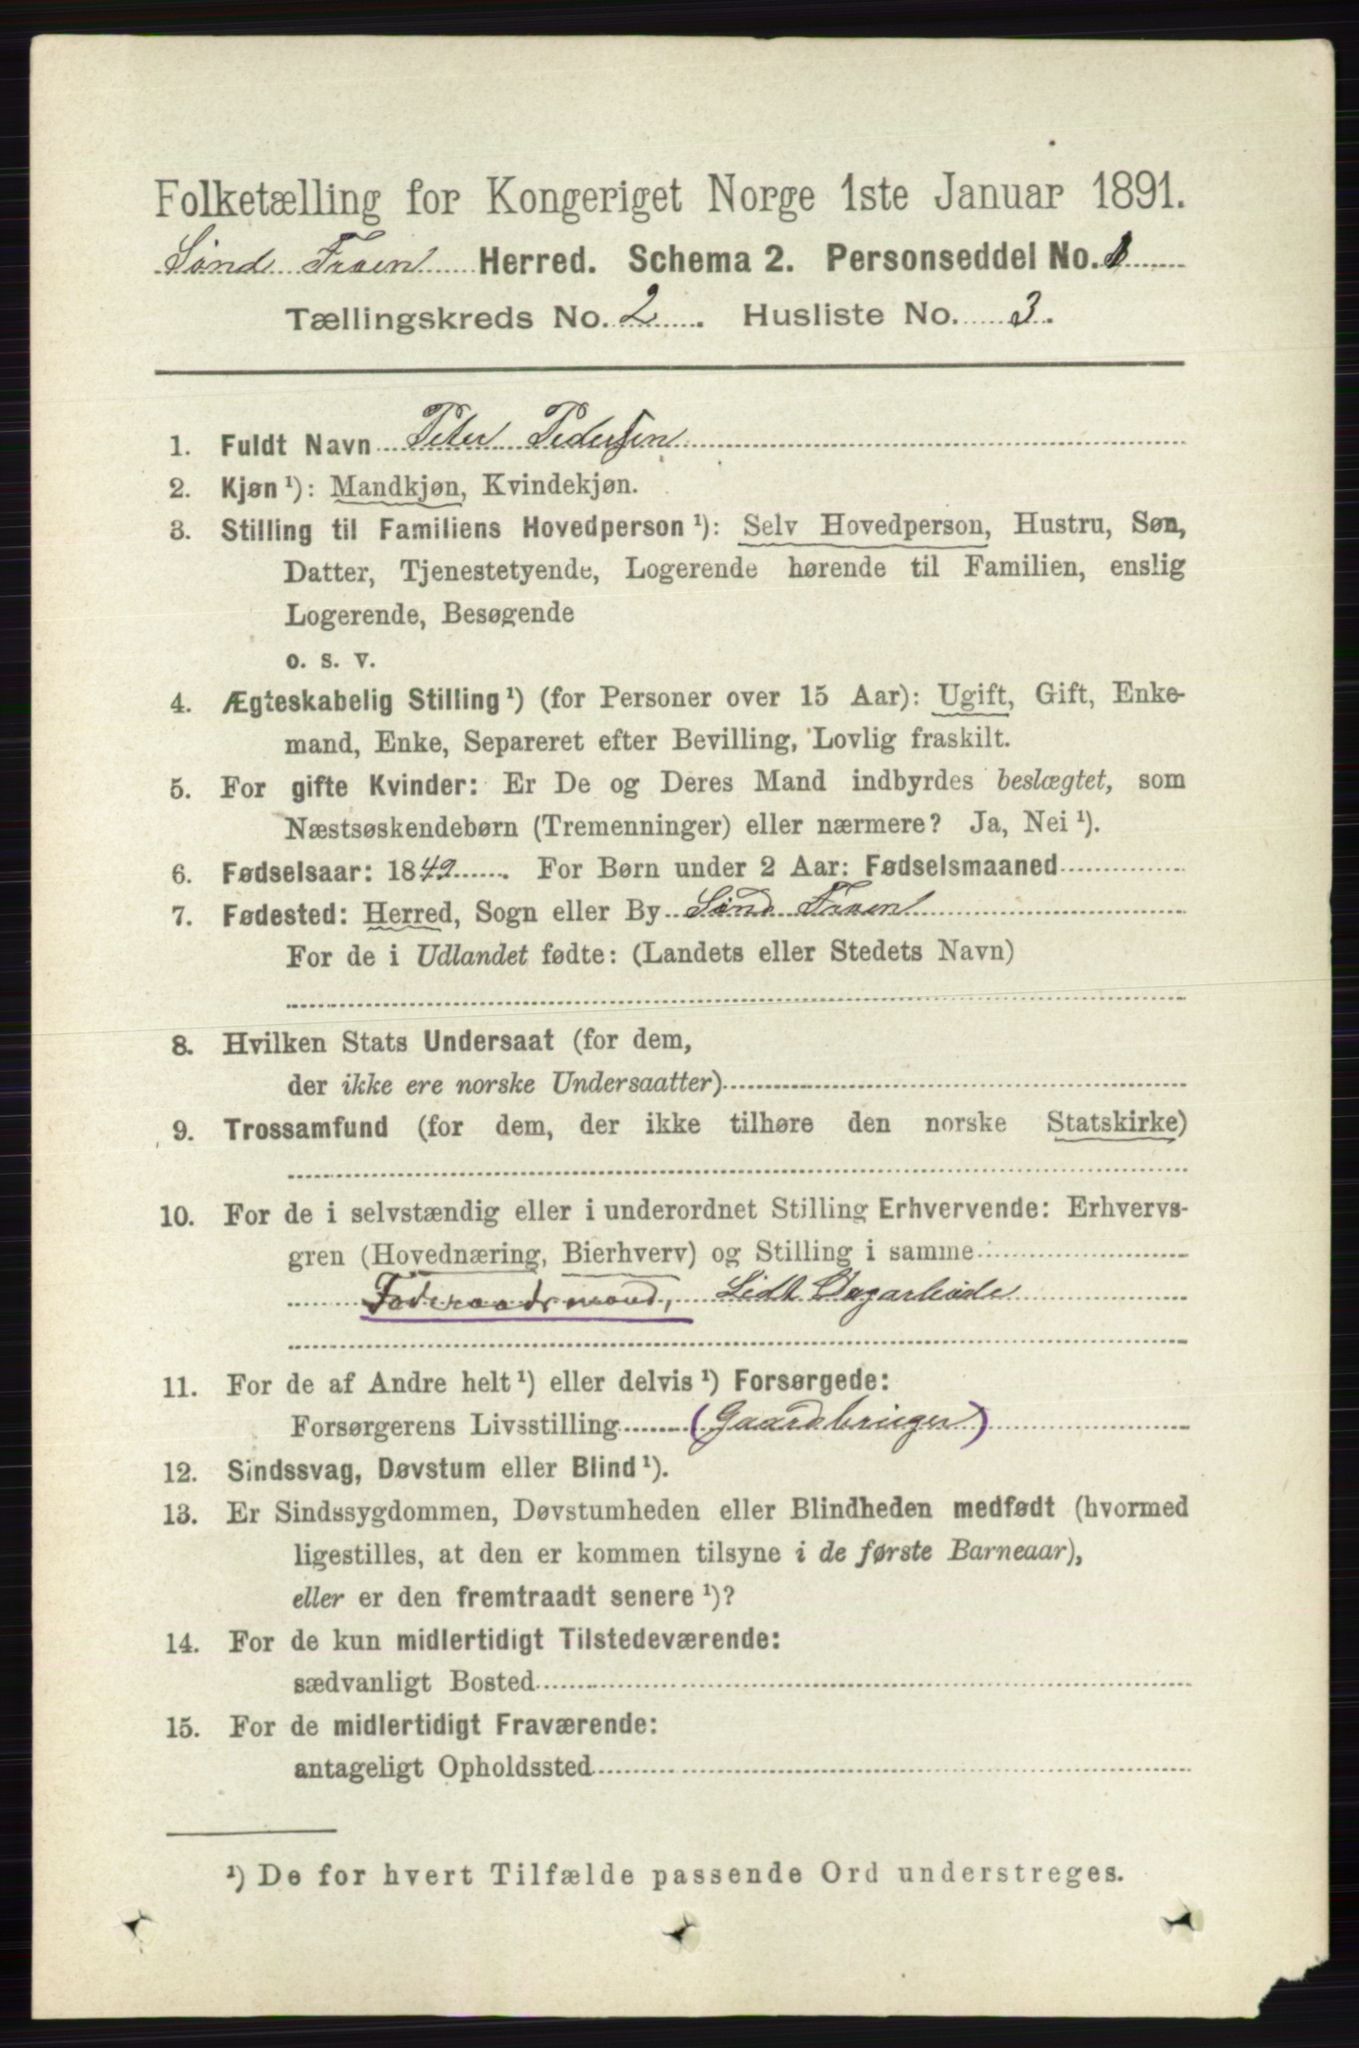 Folketælling for Kongeriget Norge 1ste Januar 1891.
Sønd Froen Herred. Schema 2. Personseddel No. 1
Tællingskreds No. 2. Husliste No. 3.
1. Fuldt Navn Peter Pedersen
2. Kjøn ¹): Mandkjøn, Kvindekjøn.
3. Stilling til Familiens Hovedperson ¹): Selv Hovedperson, Hustru, Søn,
Datter, Tjenestetyende, Logerende hørende til Familien, enslig
Logerende, Besøgende
o. s. v.
4. Ægteskabelig Stilling ¹) (for Personer over 15 Aar): Ugift, Gift, Enke-
mand, Enke, Separeret efter Bevilling, Lovlig fraskilt.
5. For gifte Kvinder: Er De og Deres Mand indbyrdes beslægtet, som
Næstsøskendebørn (Tremenninger) eller nærmere? Ja, Nei ¹).
6. Fødselsaar: 1842. For Børn under 2 Aar: Fødselsmaaned
7. Fødested: Herred, Sogn eller By Sønd Froen
For de i Udlandet fødte: (Landets eller Stedets Navn)
8. Hvilken Stats Undersaat (for dem,
der ikke ere norske Undersaatter)
9. Trossamfund (for dem, der ikke tilhøre den norske Statskirke)
10. For de i selvstændig eller i underordnet Stilling Erhvervende: Erhvervs-
gren (Hovednæring, Bierhverv) og Stilling i samme
Føderaadsmand, Lidt Dagarbeide
11. For de af Andre helt ¹) eller delvis ¹) Forsørgede:
Forsørgerens Livsstilling (Gaardbruger)
12. Sindssvag, Døvstum eller Blind ¹).
13. Er Sindssygdommen, Døvstumheden eller Blindheden medfødt (hvormed
ligestilles, at den er kommen tilsyne i de første Barneaar),
eller er den fremtraadt senere ¹)?
14. For de kun midlertidigt Tilstedeværende:
sædvanligt Bosted
15. For de midlertidigt Fraværende:
antageligt Opholdssted
¹) De for hvert Tilfælde passende Ord understreges.